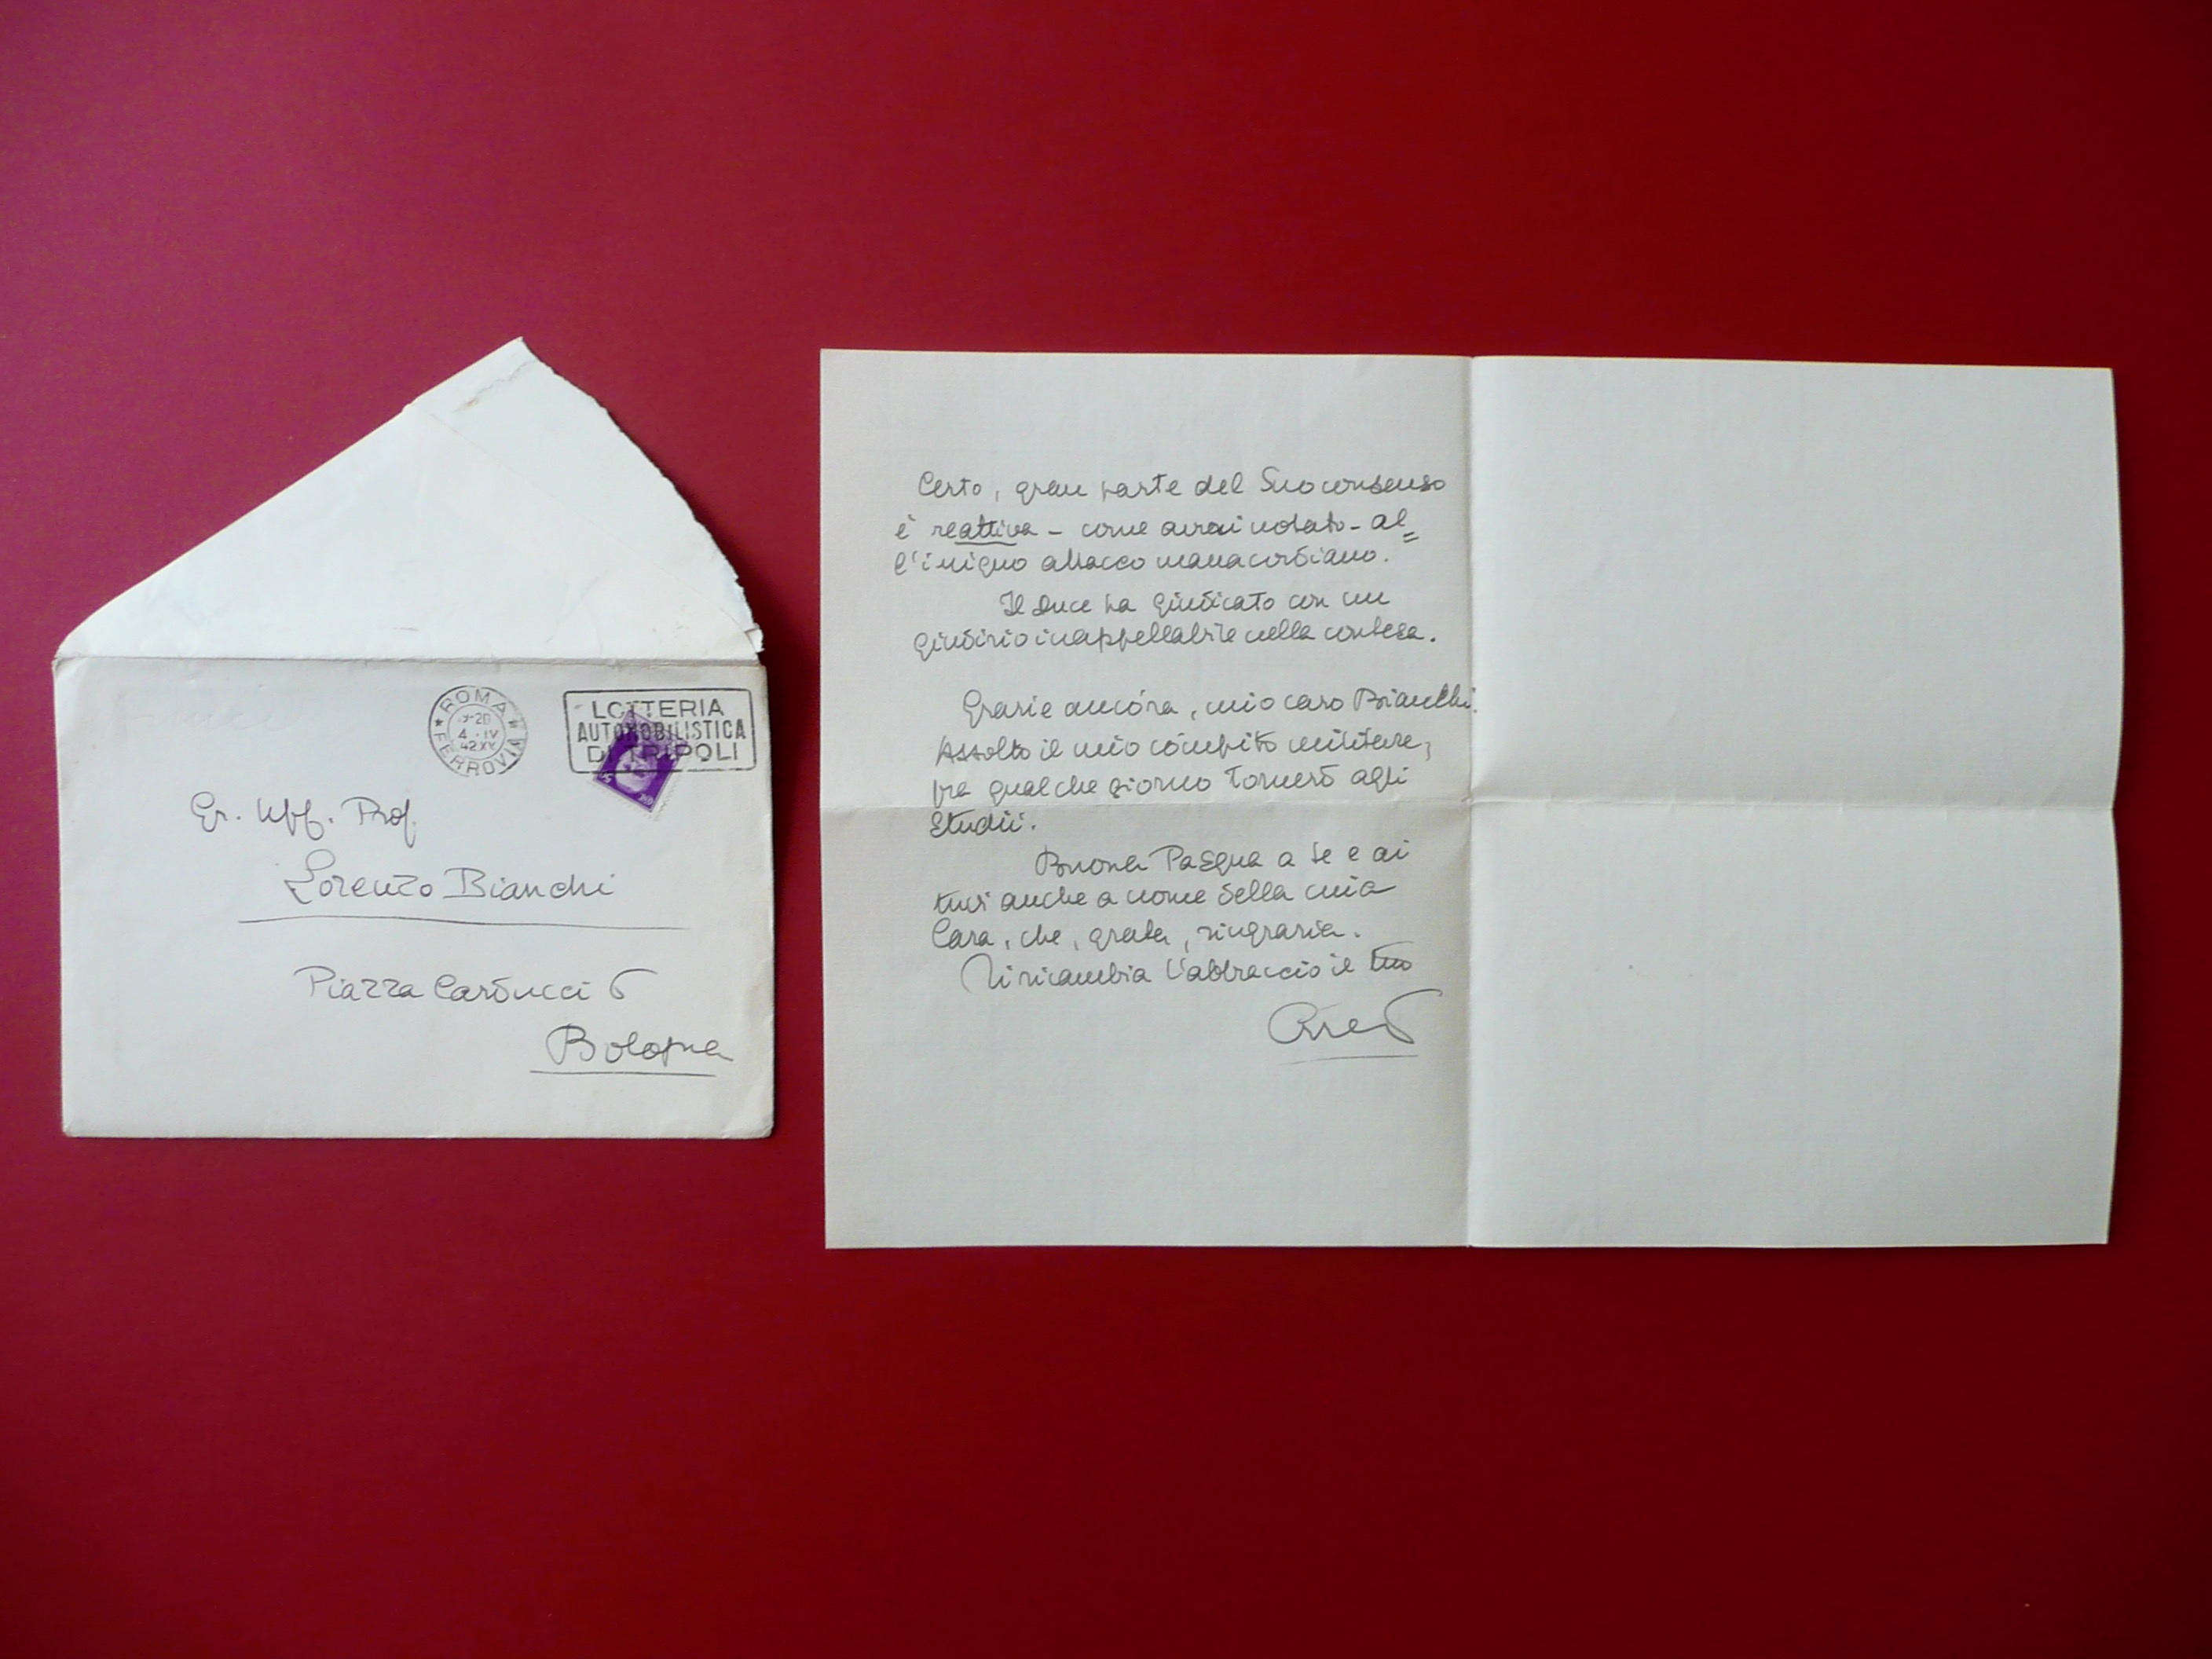 ROMA
FERROVIA
19-20
4 · IV
42 XX
LOTTERIA
AUTOMOBILISTICA
DI TRIPOLI
Gr. Uff. Prof.
Lorenzo Bianchi
Piazza Carducci 6
Bologna
Certo, gran parte del Suo consenso
è reattiva - come avrai notato - al=
l'iniquo attacco manacordiano.
Il Duce ha giudicato con un
giudizio inappellabile nella contesa.
Grazie ancóra, mio caro Bianchi.
Assolto il mio cómpito militare,
fra qualche giorno tornerò agli
Studii.
Buona Pasqua a te e ai
tuoi anche a nome della mia
Cara, che, grata, ringrazia.
Ti ricambia l'abbraccio il tuo